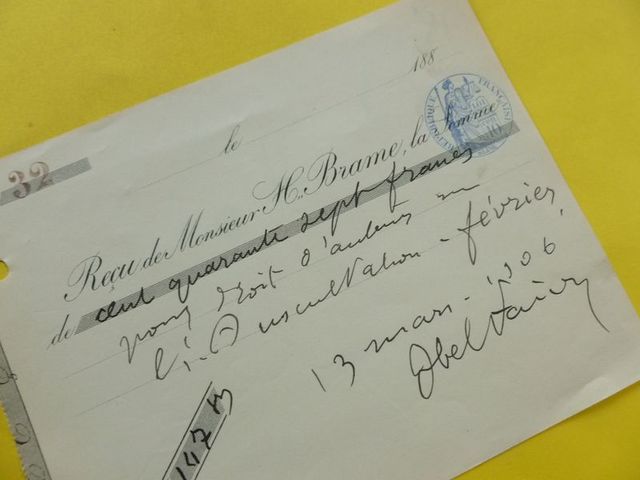 32
le 188
RÉPUBLIQUE FRANÇAISE
Reçu de Monsieur H. Brame, la Somme
de cent quarante sept francs
pour droit d'auteur sur
l'Auscultation - février
13 mars - 1906
147